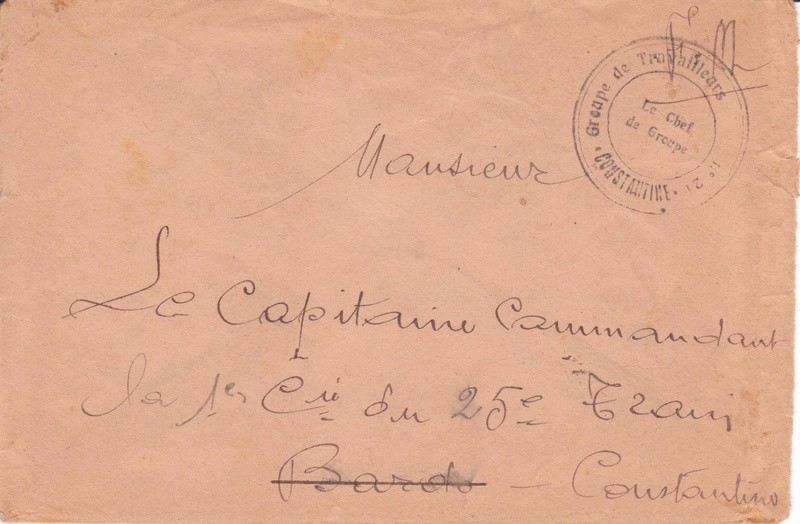 F. M.
Groupe de Travailleurs n° 2
CONSTANTINE
Le Chef
de Groupe
Monsieur
Le Capitaine Commandant
la 1re Cie du 25e Train
Bardo - Constantine